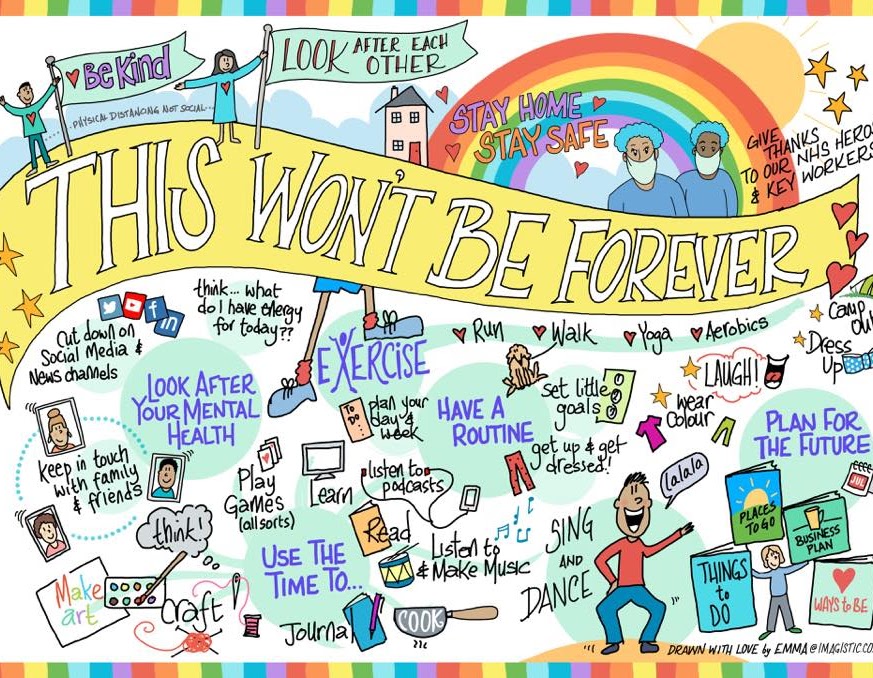 Be Kind
LOOK AFTER EACH
OTHER
PHYSICAL DISTANCING NOT SOCIAL...
STAY HOME
STAY SAFE
GIVE
THANKS
TO OUR NHS HEROS
& KEY WORKERS
THIS WON'T BE FOREVER
f
in
Cut down on
Social Media &
News channels
think... what
do I have energy
for today??
EXERCISE
Run
Walk
Yoga
Aerobics
Camp
out
Dress
Up
LOOK AFTER
YOUR MENTAL
HEALTH
TO
DO
plan your
day &
week
HAVE A
ROUTINE
set little
goals
get up & get
dressed!
LAUGH!
wear
Colour
PLAN FOR
THE FUTURE
JUL
keep in touch
with family
& friends
think!
Play
Games
(all sorts)
Learn
listen to
podcasts
Read
Listen to
& Make Music
USE THE
TIME TO...
Make
art
Craft
Journal
COOK
SING
AND
DANCE
lalala
PLACES
TO GO
BUSINESS
PLAN
THINGS
to
DO
WAYS to BE
DRAWN WITH LOVE by EMMA@IMAGISTIC.CO